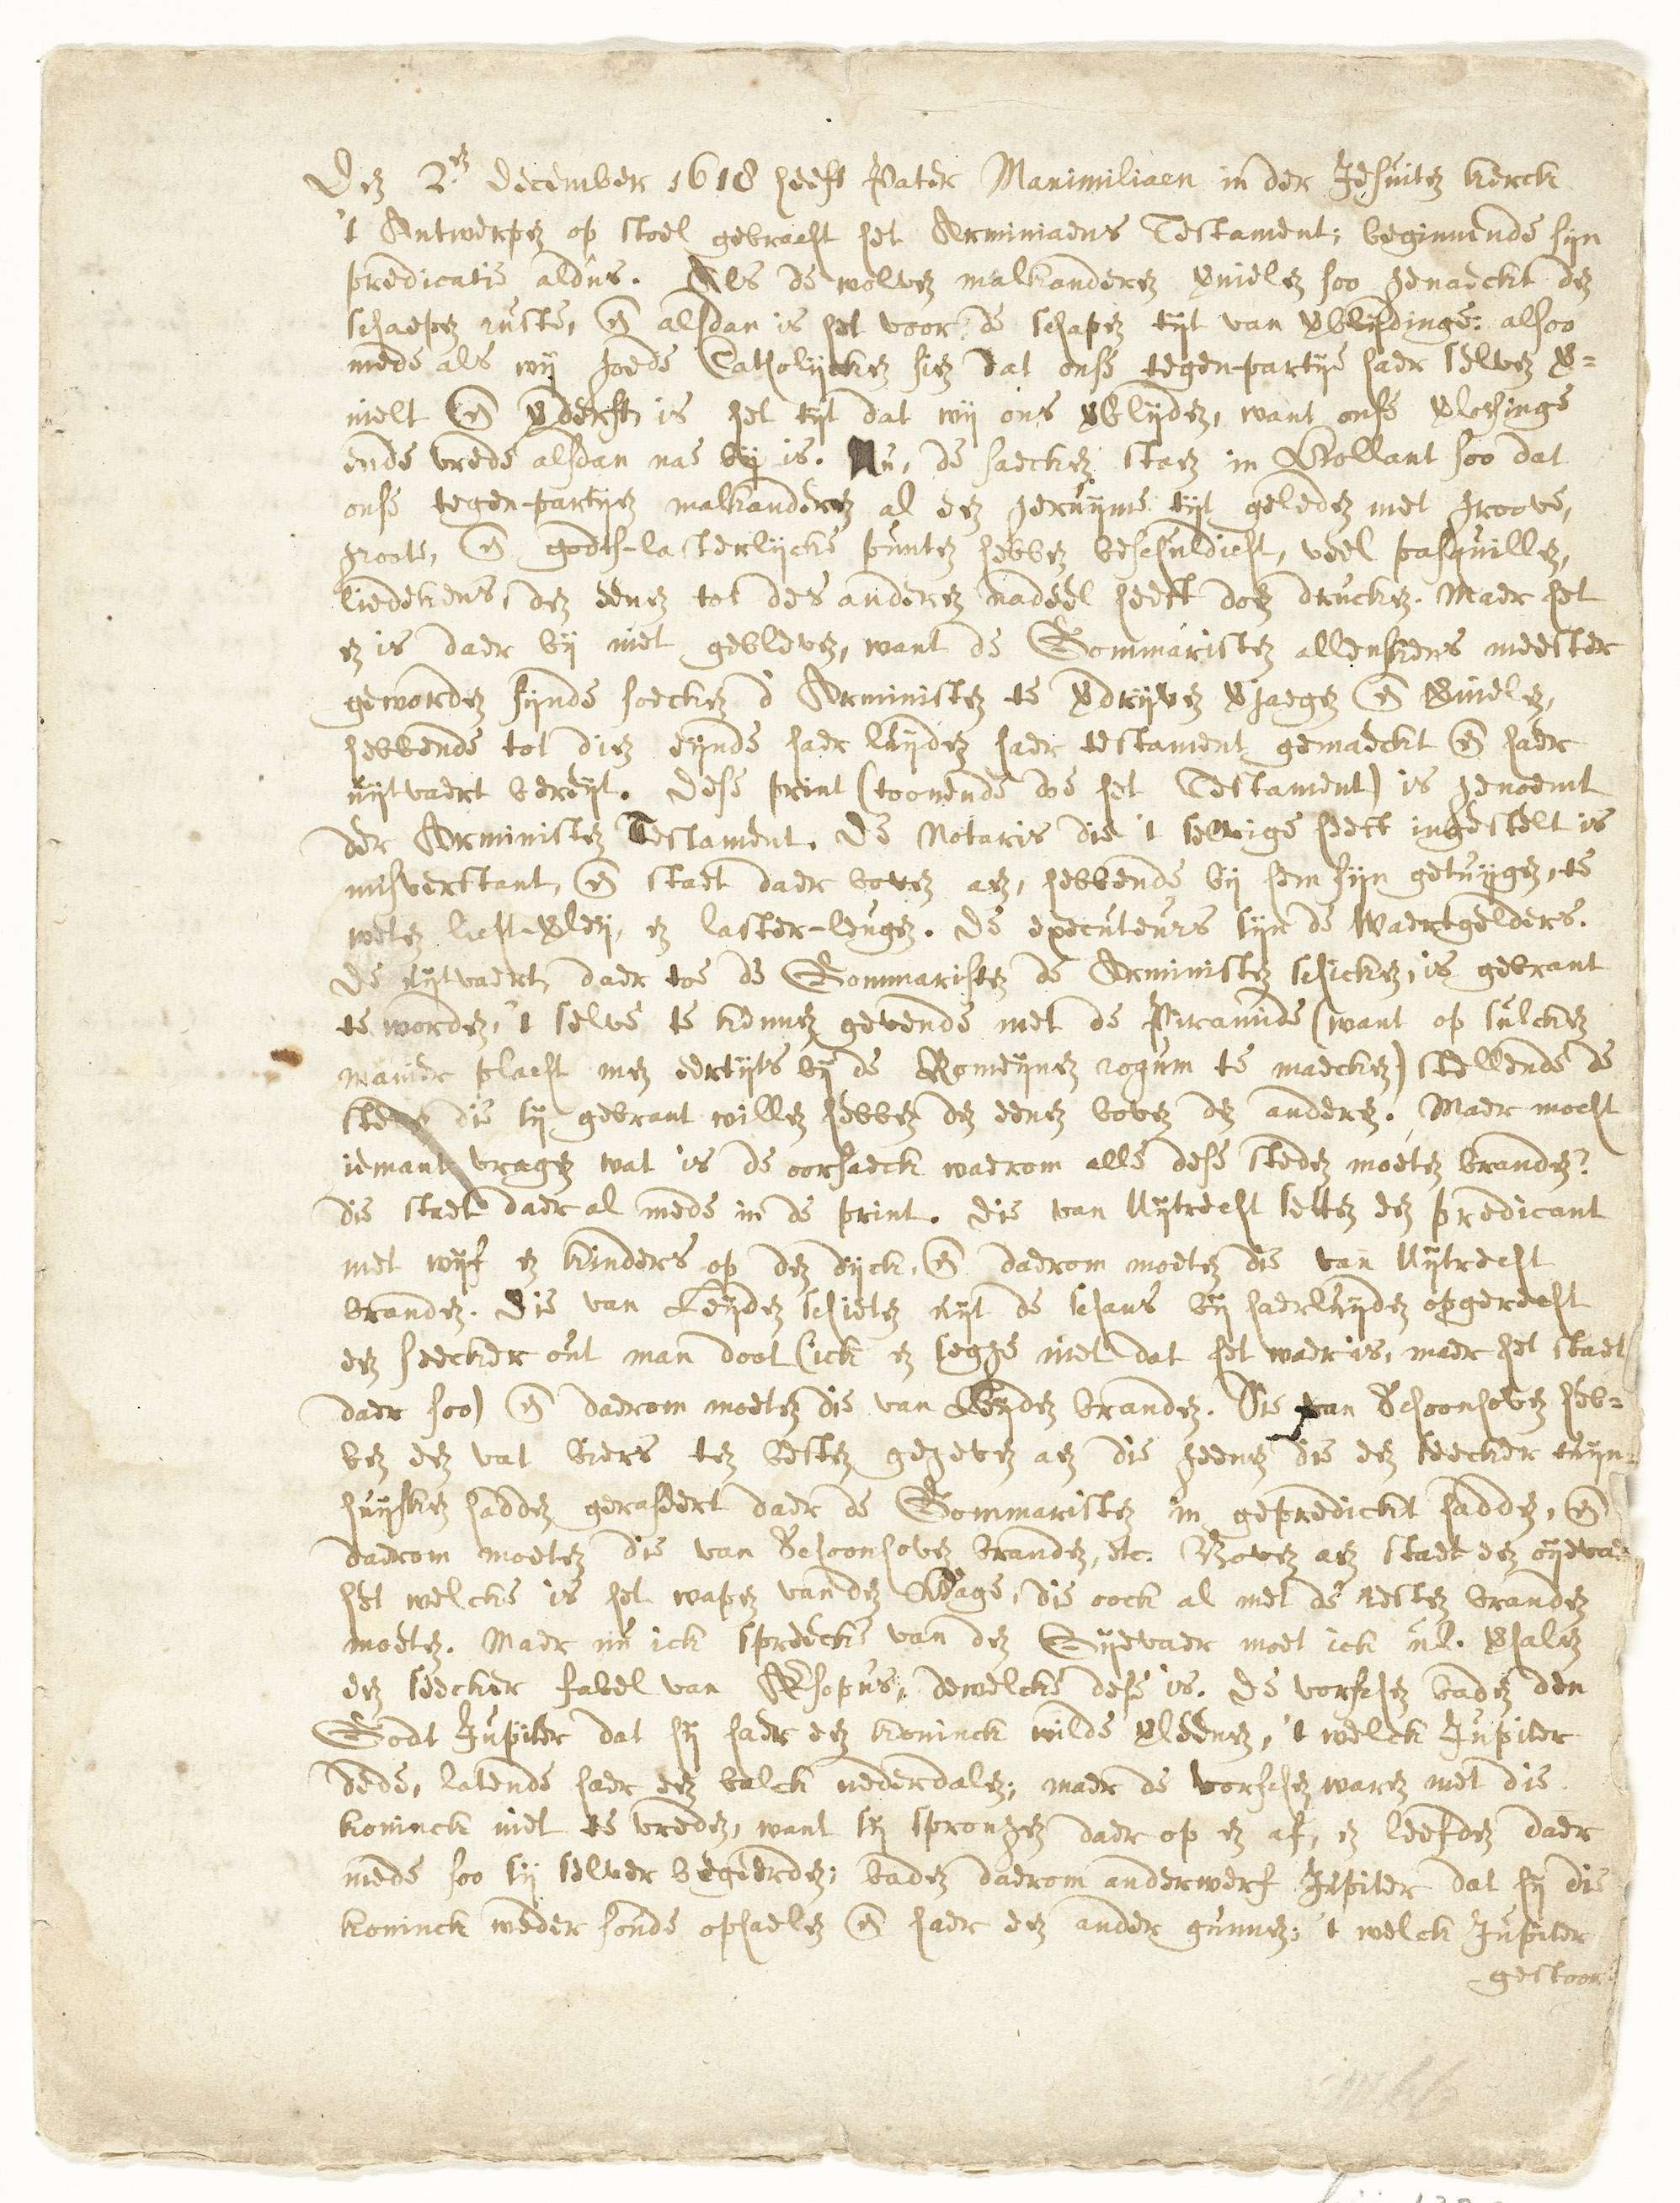 Den 2en december 1618 heeft Pater Maximiliaen in der Jesuiten kerck
't Antwerpen op stoel gebracht het Arminiaens Testament; beginnende sijn
predicatie aldus. Als de wolven malkanderen vnielen soo genaeckt den
schaepen ruste, en alsdan is het voor de schapen tijt van vblijdinge: alsoo
mede als wij goede Catholijcken sien dat onse tegen-partije haer selven v-
nielt en vderft, is het tijt dat wij ons vblijden, want onse vlossinge
ende vrede alsdan nae bij is. Nu, de saecken staen in Hollant soo dat
onse tegen-partijen malkanderen al een geruijme tijt geleden met groove,
groote, en godts-lasterlijcke punten hebben beschuldicht, veel pasquillen,
liedekens, den eenen tot des anderen nadeel heeft doen drucken. Maer het
en is daer bij niet gebleven, want de Gommaristen allenskens meester
geworden sijnde soecken d' Arministen te vdrijven vjaegen en vnielen,
hebbende tot dien eijnde haer luijden haer testament gemaeckt en haer
uijtvaert bereijt. Dese print (toonende doe het Testament) is genoemt
der Arministen Testament. De Notaris die 't selvige heeft ingestelt is
misverstant, en staet daer boven aen, hebbende bij hem sijn getuijgen, te
weten list-vleij, en laster-leugen. De executeurs sijn de Waertgelders.
De uijtvaert, daer toe de Gommaristen de Arministen schicken, is gebrant
te worden, 't selve te kennen gevende met de Piramide (want op sulcken
manier placht men eertijts bij de Romeijnen rogum te maecken) stellende de
steden die sij gebrant willen hebben den eenen boven den anderen. Maer mocht
iemant vragen wat is de oorsaeck waerom alle dese steden moeten branden?
die staet daer al mede in de print. Die van Uijtrecht setten een predicant
met wijf en kinders op den dijck, en daerom moeten die van Uijtrecht
branden. Die van Leijden schieten uijt de schans bij haerluijden opgerecht
een seecker out man doot (ick en segge niet dat het waer is, maer het staet
daer soo) en daerom moeten die van Leijden branden. Die van Schoonhoven heb-
ben een vat biers ten besten gegeven aen die geene die een seecker tuijn-
huijsken hadden geraseert daer de Gommaristen in gepredickt hadden, en
daerom moeten die van Schoonhoven branden, etc. Boven aen staet een oijevaer
het welcke is het wapen van den Hage, die oock al met de resten branden
moeten. Maer nu ick spreecke van den Oijevaer moet ick ul. vhalen
een seecker fabel van Æsopus, dewelcke dese is. De vorschen baden den
Godt Jupiter dat hij haer een koninck wilde vleenen, 't welck Jupiter
dede, latende haer een balck nederdalen; maer de vorschen waren met die
koninck niet te vreden, want sij sprongen daer op en af, en leefden daer
mede soo sij selver begeerden; baden daerom anderwerf Jupiter dat hij die
koninck weder soude ophaelen en haer een ander gunnen; 't welck Jupiter
gestoor